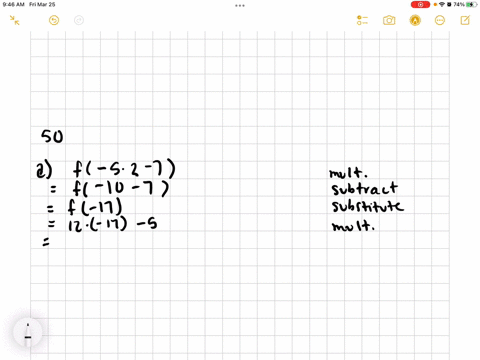 9:46 AM Fri Mar 25
74%
50
a) f(-5·2-7) mult.
= f(-10-7) subtract
= f(-17) substitute
= 12·(-17) -5 mult.
=